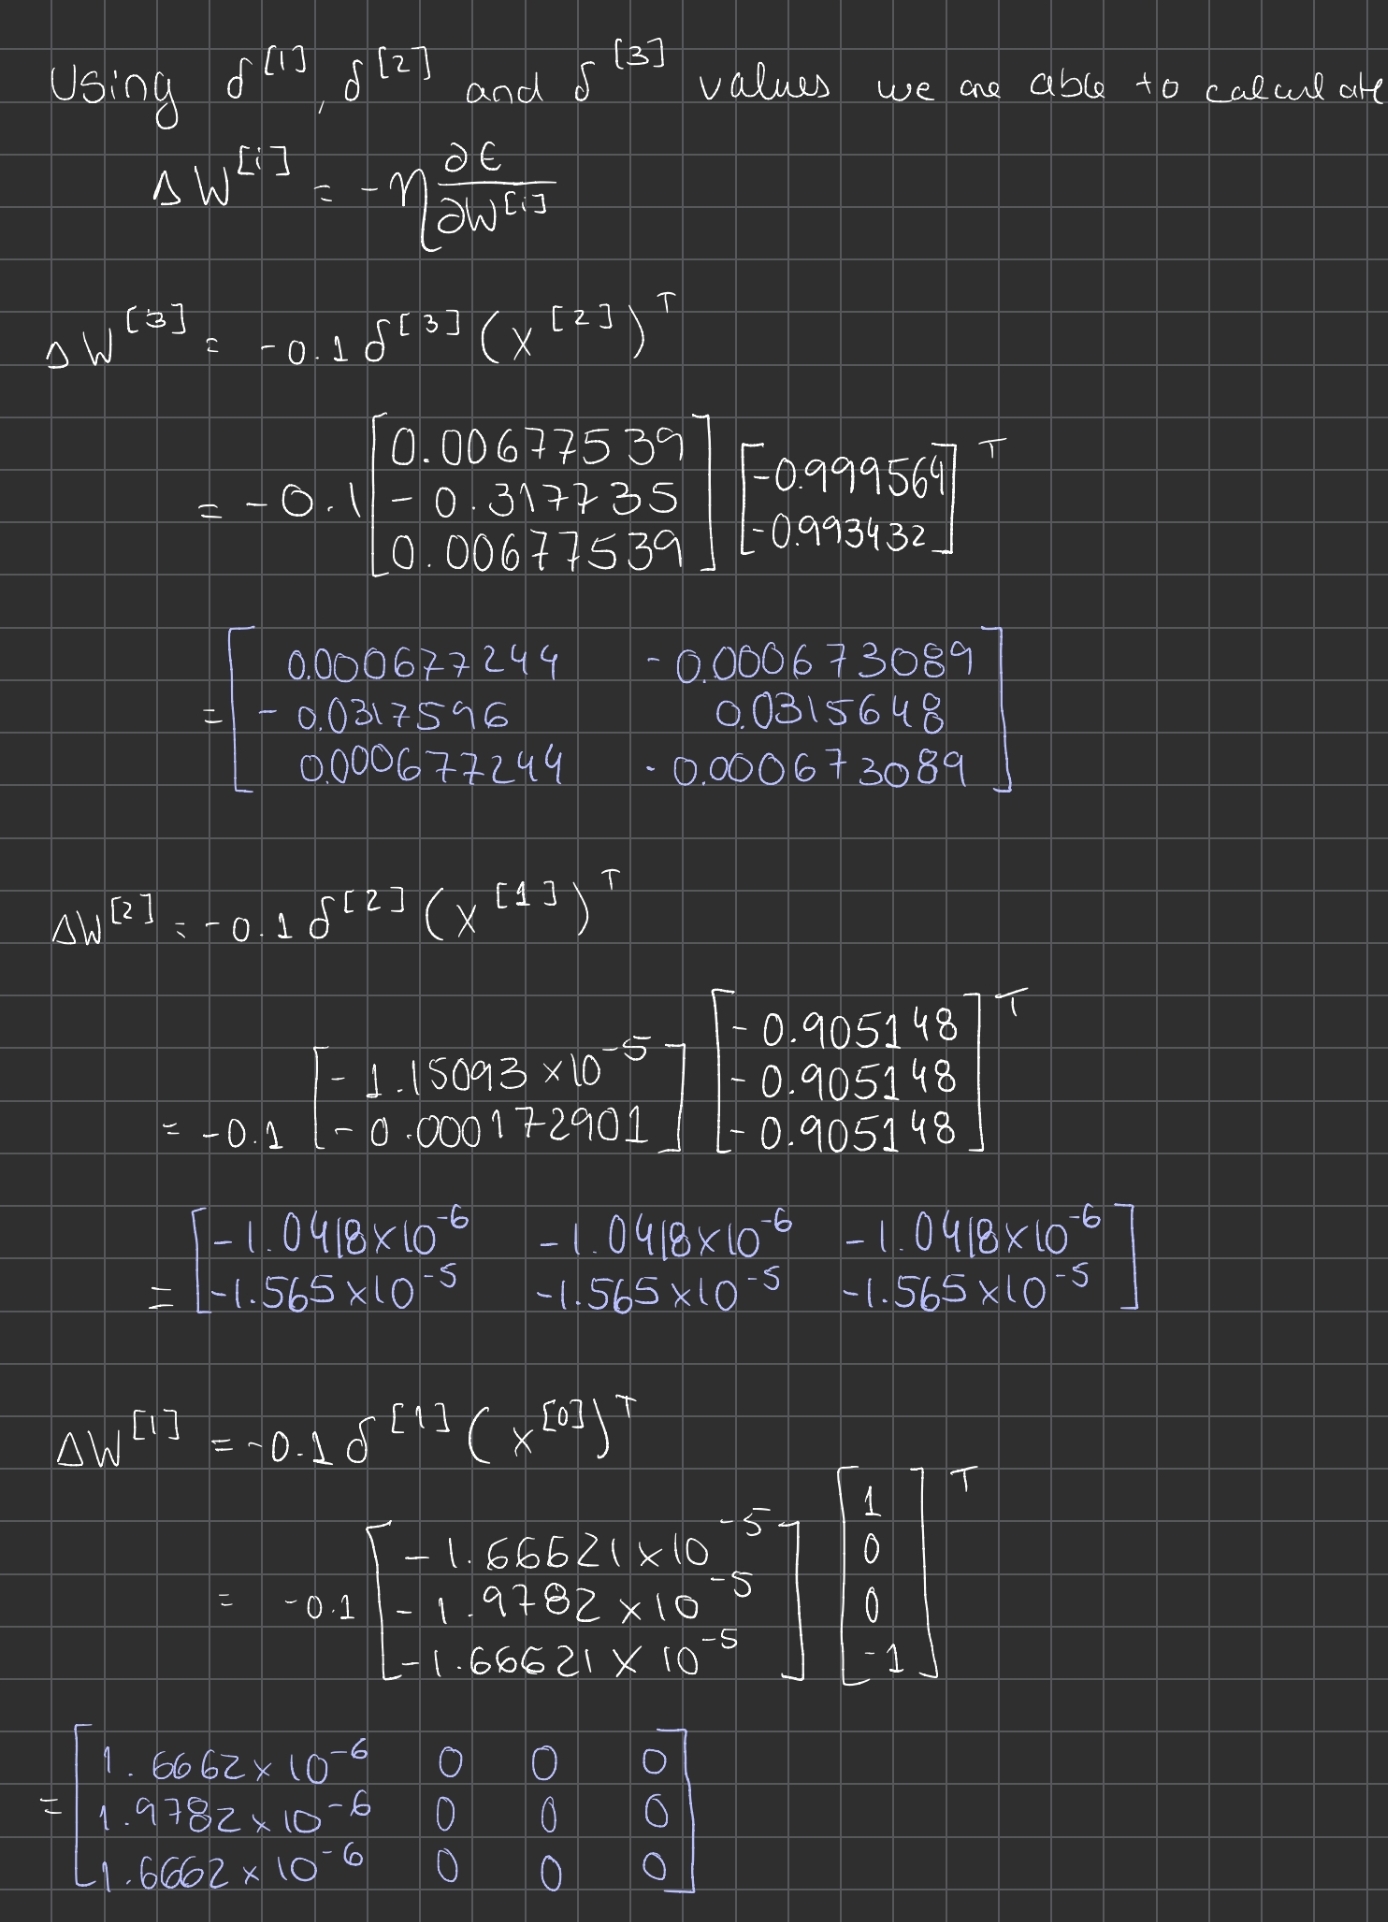 Using δ^[1], δ^[2] and δ^[3] values we are able to calculate
ΔW^[i] = -η ∂E/∂W^[i]
ΔW^[3] = -0.1 δ^[3] (x^[2])^T
= -0.1 [0.00677539; -0.317735; 0.00677539] [-0.999564; -0.993432]^T
= [0.000677244 -0.000673089; -0.0317596 0.0315648; 0.000677244 -0.000673089]
ΔW^[2] = -0.1 δ^[2] (x^[1])^T
= -0.1 [-1.15093×10^-5; -0.000172901] [-0.905148; -0.905148; -0.905148]^T
= [-1.0418×10^-6 -1.0418×10^-6 -1.0418×10^-6; -1.565×10^-5 -1.565×10^-5 -1.565×10^-5]
ΔW^[1] = -0.1 δ^[1] (x^[0])^T
= -0.1 [-1.66621×10^-5; -1.9782×10^-5; -1.66621×10^-5] [1; 0; 0; -1]^T
= [1.6662×10^-6 0 0 0; 1.9782×10^-6 0 0 0; 1.6662×10^-6 0 0 0]